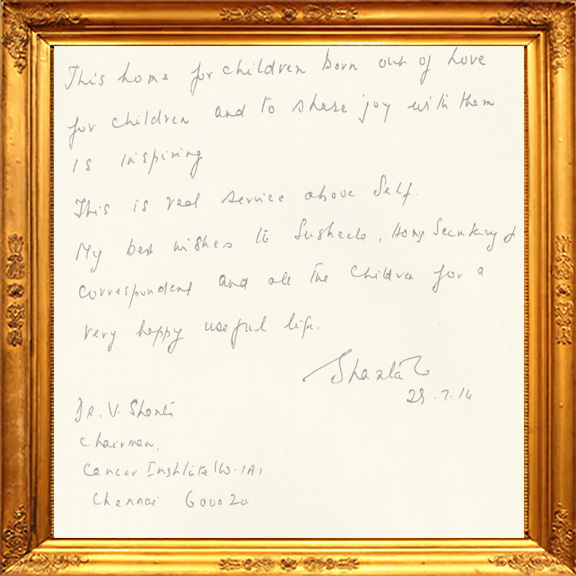 This home for children born out of love
for children and to share joy with them
is inspiring
This is real service above Self.
My best wishes to Susheela, Hony Secretary &
correspondent and all the children for a
very happy useful life.
Shanta
28.7.14
Dr. V. Shanta
Chairman,
Cancer Institute (W.I.A)
Chennai 600020